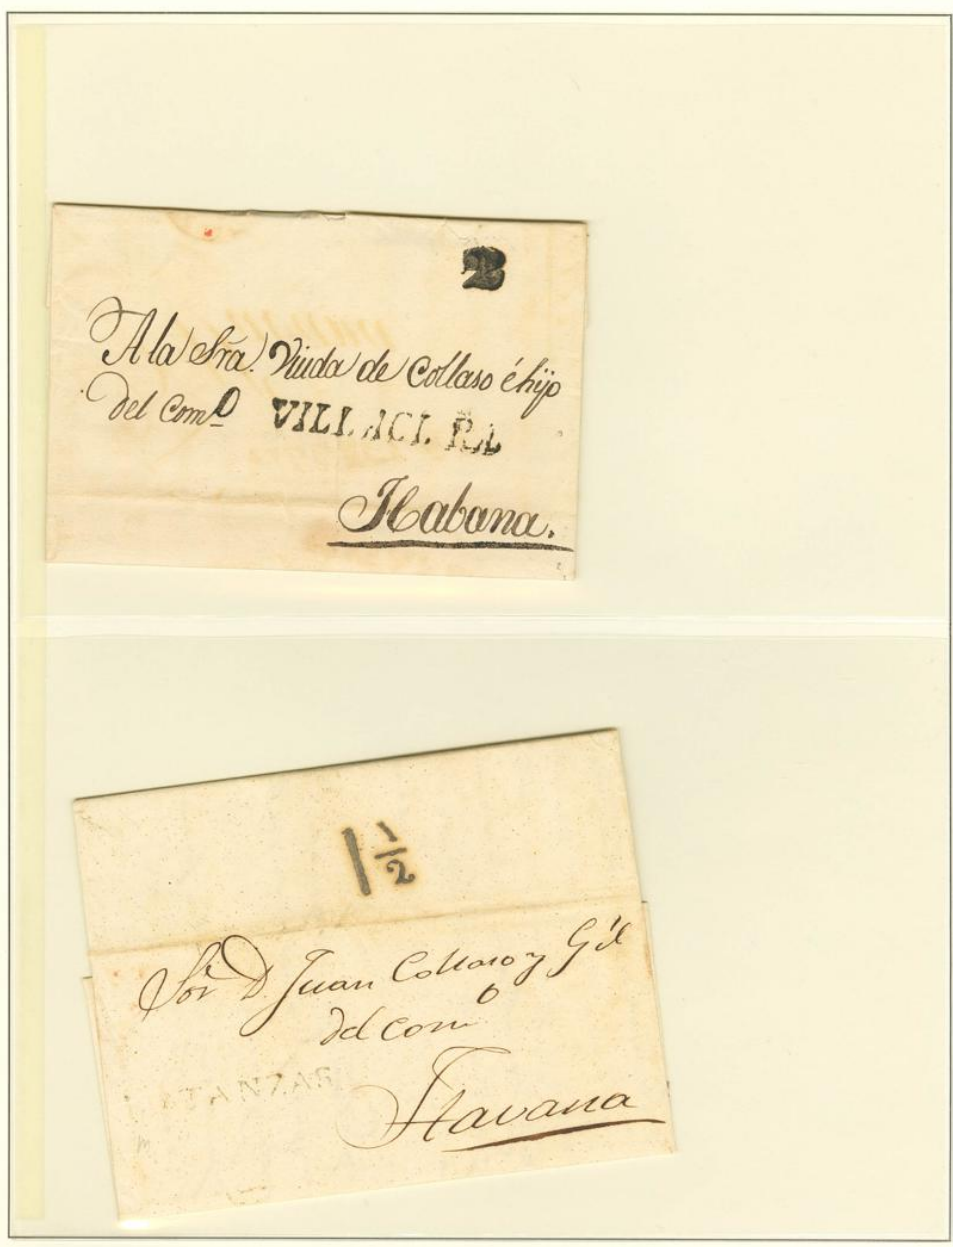 2
A la Sra. Viuda de Collaso é hijo
del Com.º VILLACLRA
Habana.
1 1/2
Sor D. Juan Collaso y Gil
del como
Havana